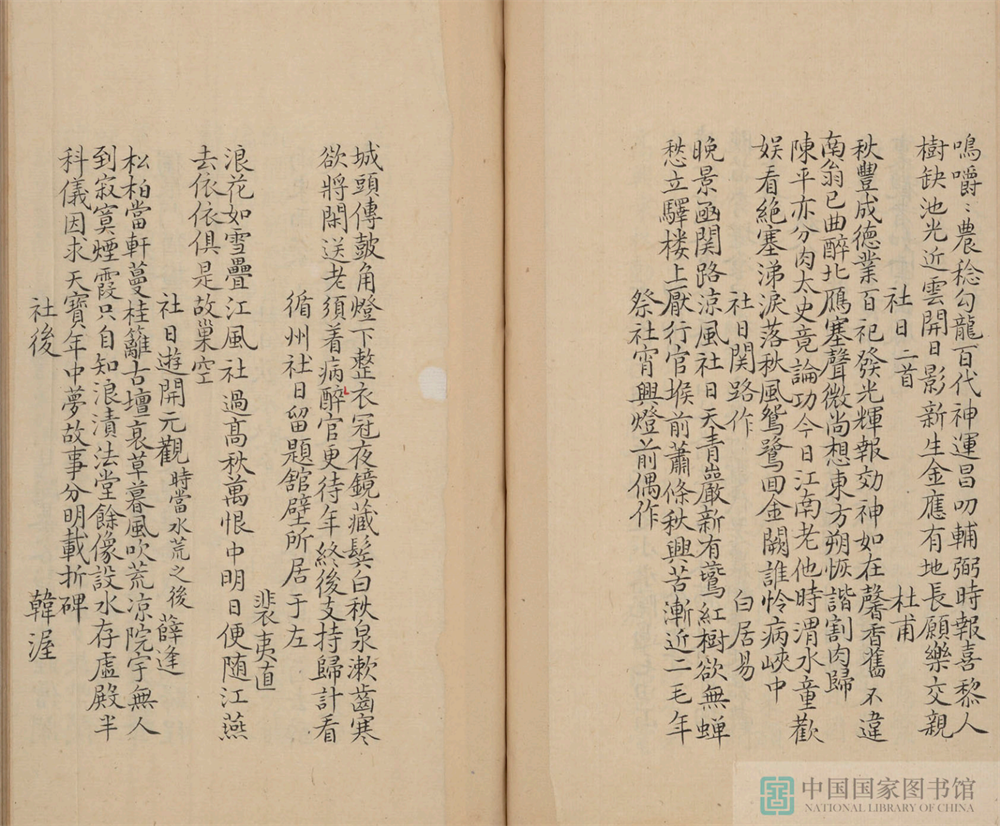 鳴嚼〻農稔勾龍百代神運昌叨輔弼時報喜黎人
樹缺池光近雲開日影新生金應有地長願樂交親
社日二首　杜甫
秋豐成德業百祀發光輝報効神如在馨香舊不違
南翁巴曲醉北鴈塞聲微尚想東方朔恢諧割肉歸
陳平亦分肉太史竟論功今日江南老他時渭水童歡
娱看絶塞涕淚落秋風鴛鷺囬金闕誰怜病峽中
社日関路作　白居易
晚景函関路涼風社日天青巖新有鷰紅樹欲無蝉
愁立驛楼上厭行官堠前蕭條秋興苦漸近二毛年
祭社宵興燈前偶作
城頭傳皷角燈下整衣冠夜鏡藏鬂白秋泉漱齒寒
欲將閑送老須着病醉官更待年終後支持歸計看
循州社日留題舘壁所居于左
裴夷直
浪花如雪疊江風社過高秋萬恨中明日便随江燕
去依依俱是故巢空
社日遊開元觀 時當水荒之後　薛逢
松柏當軒蔓桂籬古壇衰草暮風吹荒凉院宇無人
到寂寞煙霞只自知浪漬法堂餘像設水存虚殿半
科儀因求天寶年中夢故事分明載折碑
社後　韓渥
中国国家图书馆
NATIONAL LIBRARY OF CHINA